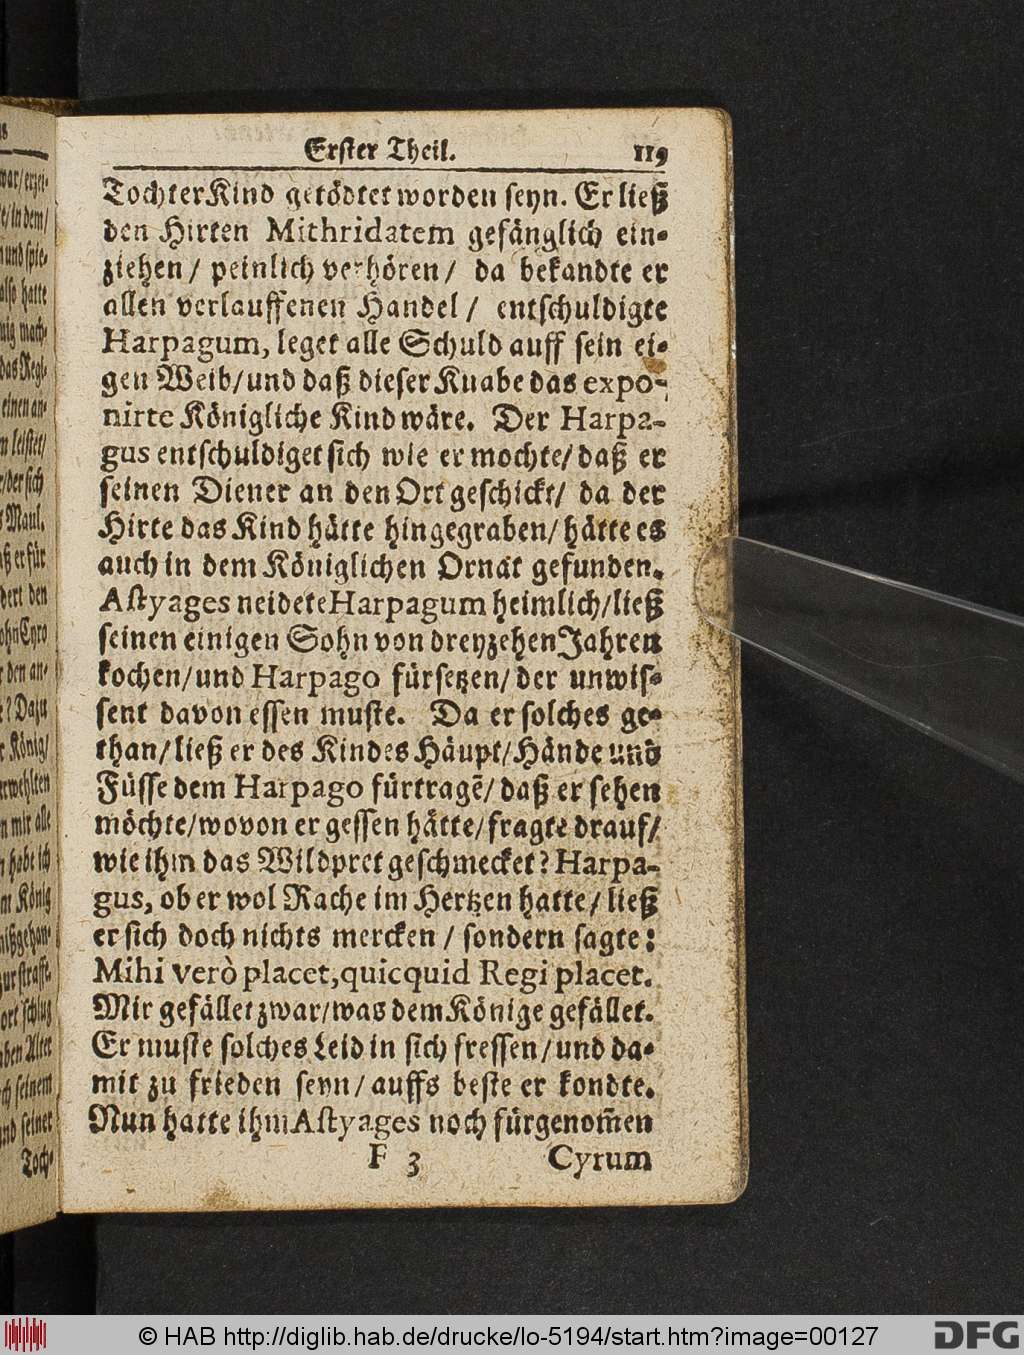 Erster Theil. 119
Tochter Kind getödtet worden seyn. Er ließ
den Hirten Mithridatem gefänglich ein-
ziehen / peinlich verhören / da bekandte er
allen verlauffenen Handel / entschuldigte
Harpagum, leget alle Schuld auff sein ei-
gen Weib/ und daß dieser Knabe das expo-
nirte Königliche Kind wäre. Der Harpa-
gus entschuldiget sich wie er mochte/ daß er
seinen Diener an den Ort geschickt/ da der
Hirte das Kind hätte hingegraben/ hätte es
auch in dem Königlichen Ornat gefunden.
Astyages neidete Harpagum heimlich/ ließ
seinen einigen Sohn von dreyzehen Jahren
kochen/ und Harpago fürsetzen/ der unwis-
sent davon essen muste. Da er solches ge-
than/ ließ er des Kindes Häupt/ Hände und
Füsse dem Harpago fürtragẽ/ daß er sehen
möchte/ wovon er gessen hätte/ fragte drauf/
wie ihm das Wildpret geschmecket? Harpa-
gus, ob er wol Rache im Hertzen hatte/ ließ
er sich doch nichts mercken / sondern sagte:
Mihi verò placet, quicquid Regi placet.
Mir gefället zwar/ was dem Könige gefället.
Er muste solches Leid in sich fressen/ und da-
mit zu frieden seyn/ auffs beste er kondte.
Nun hatte ihm Astyages noch fürgenom̃en
F 3 Cyrum
© HAB http://diglib.hab.de/drucke/lo-5194/start.htm?image=00127
DFG